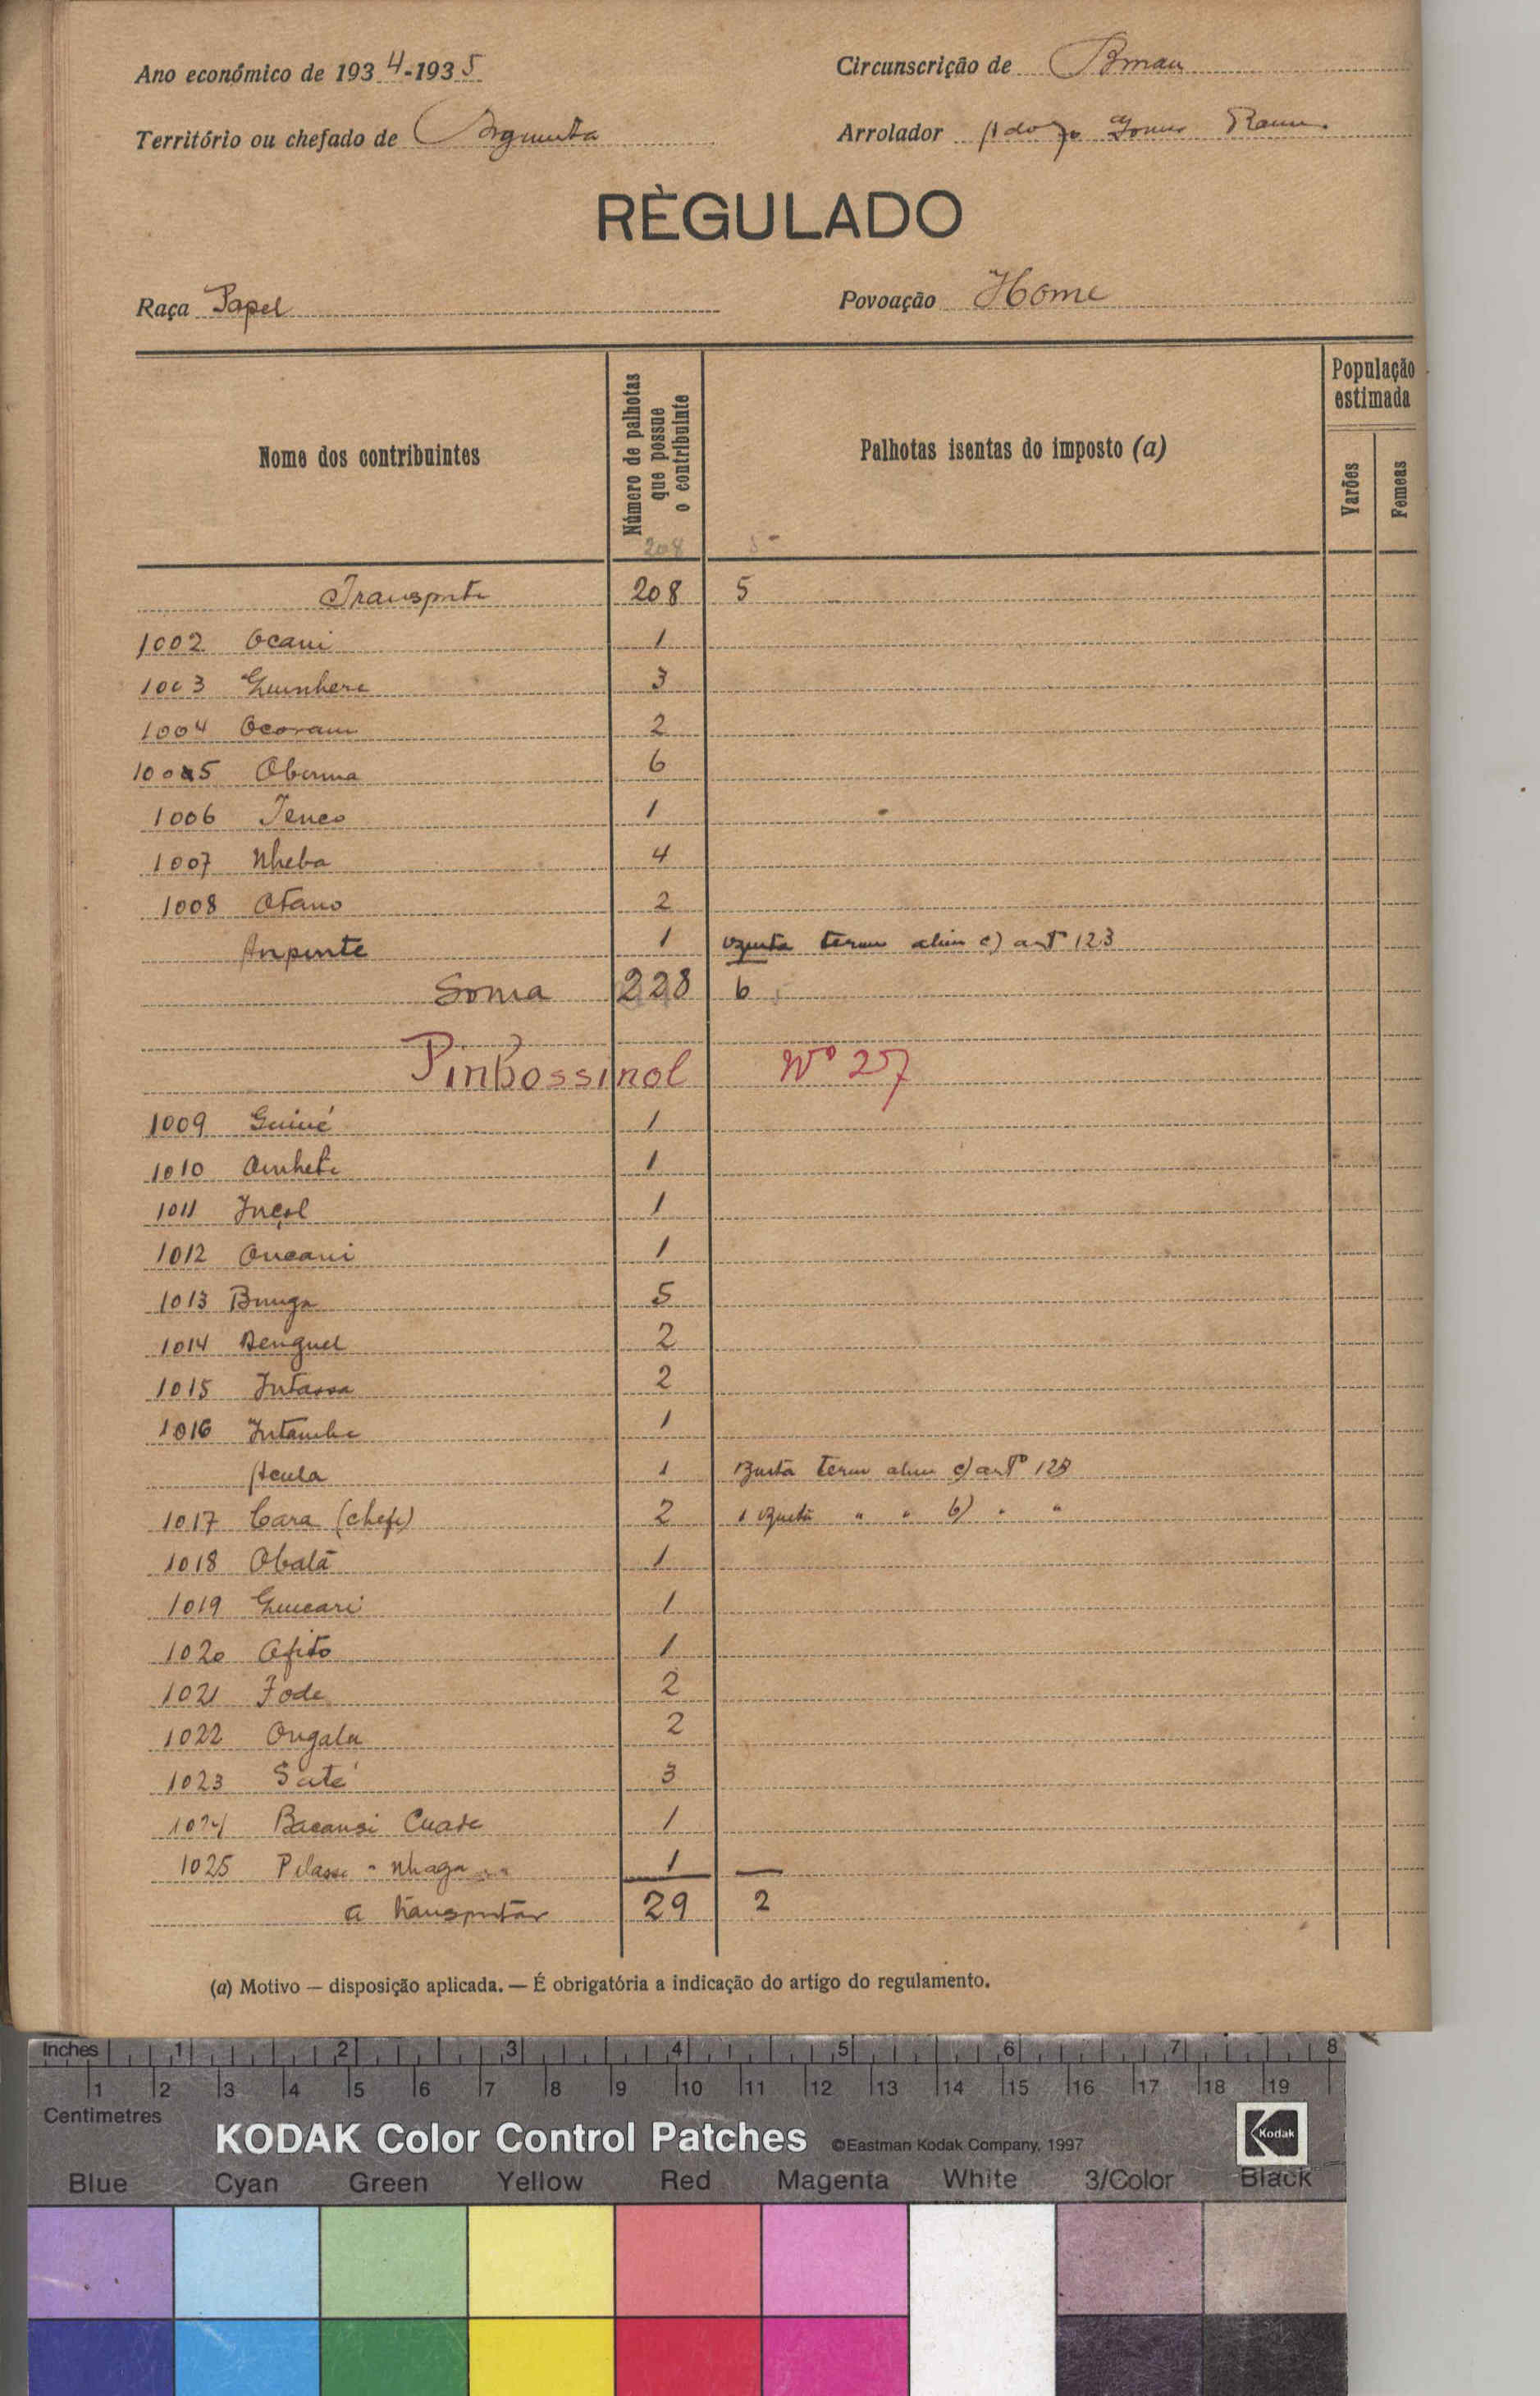 Ano económico de 1934-1935 Circunscrição de
Território ou chefado de Arrolador Gomes
RÈGULADO
Raça Papel Povoação Home
Nome dos contribuintes
Número de palhotas
que possue
o contribuinte
Palhotas isentas do imposto (a)
População
estimada
Varões
Femeas
208 5
Transporte 208 5
1002 Ocani 1
1003 Guinhere 3
1004 Ocoram 2
1005 6
1006 Tenco 1
1007 Nheba 4
1008 Otano 2
1 alin c) artº 123
Soma 228 6
Pinbossinol Nº 27
1009 Guiné 1
1010 1
1011 Inçol 1
1012 Oncani 1
1013 Bunga 5
1014 Benguel 2
1015 Intassa 2
1016 Intambe 1
Acula 1 c) artº 123
1017 Cara (chefe) 2 1 " " b) " "
1018 Obalá 1
1019 Guicari 1
1020 Afito 1
1021 Fode 2
1022 Ongala 2
1023 Saté 3
1024 Bacansi Cuade 1
1025 Nhaga 1
a transportar 29 2
(a) Motivo — disposição aplicada. — É obrigatória a indicação do artigo do regulamento.
Inches 1 2 3 4 5 6 7 8
1 2 3 4 5 6 7 8 9 10 11 12 13 14 15 16 17 18 19
Centimetres
KODAK Color Control Patches ©Eastman Kodak Company, 1997 Kodak
Blue Cyan Green Yellow Red Magenta White 3/Color Black